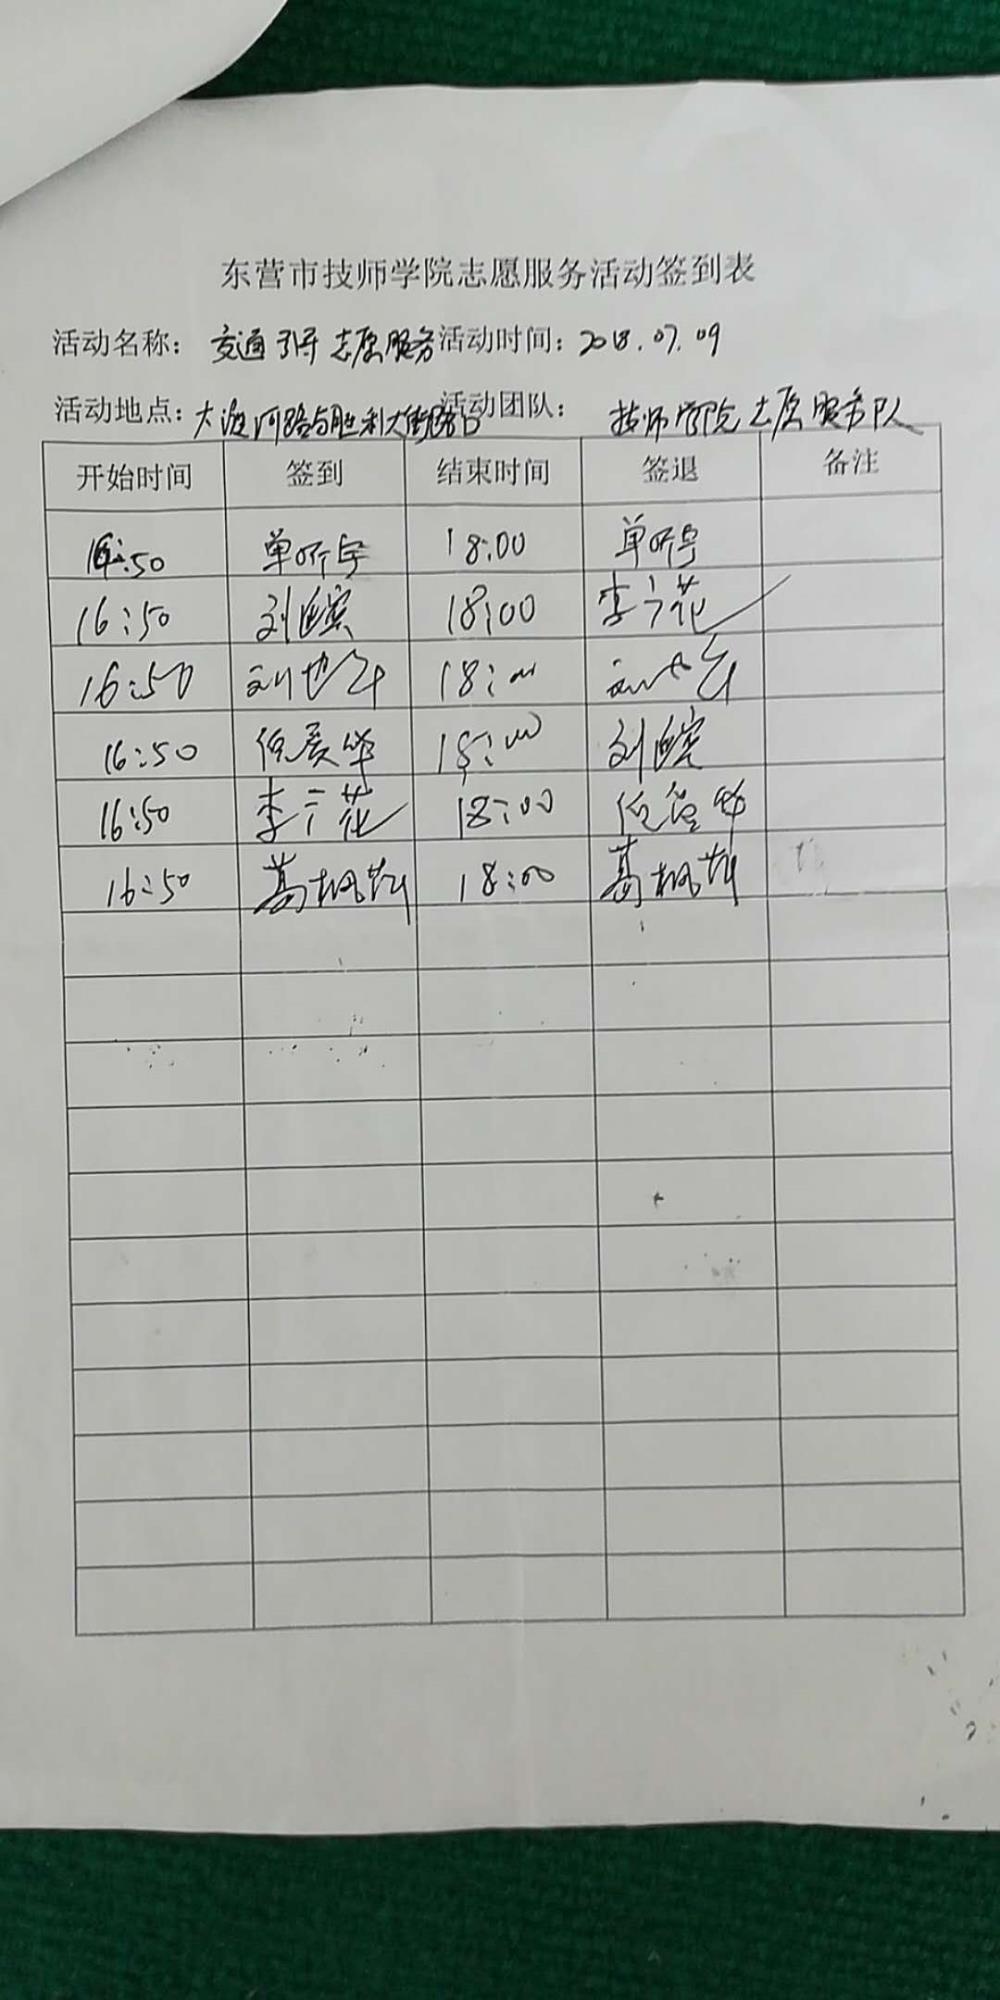 东营市技师学院志愿服务活动签到表
活动名称： 交通引导志愿服务 活动时间：2018.07.09
活动地点：大渡河路与胜利大街路口 活动团队： 技师学院志愿服务队
开始时间 签到 结束时间 签退 备注
16:50 单昕宇 18:00 单昕宇
16:50 刘 18:00 李广花
16:50 刘 18:00 刘
16:50 倪爱华 18:00 刘
16:50 李广花 18:00 倪爱华
16:50 葛枫 18:00 葛枫